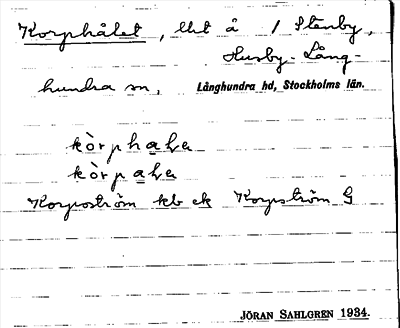 Korphålet, llet å / Stenby,
Husby-Lång-
hundra sn, Långhundra hd, Stockholms län.
kòrphaLe
kòrpaLe
Korpström kb ek Korpström G
JÖRAN SAHLGREN 1934.